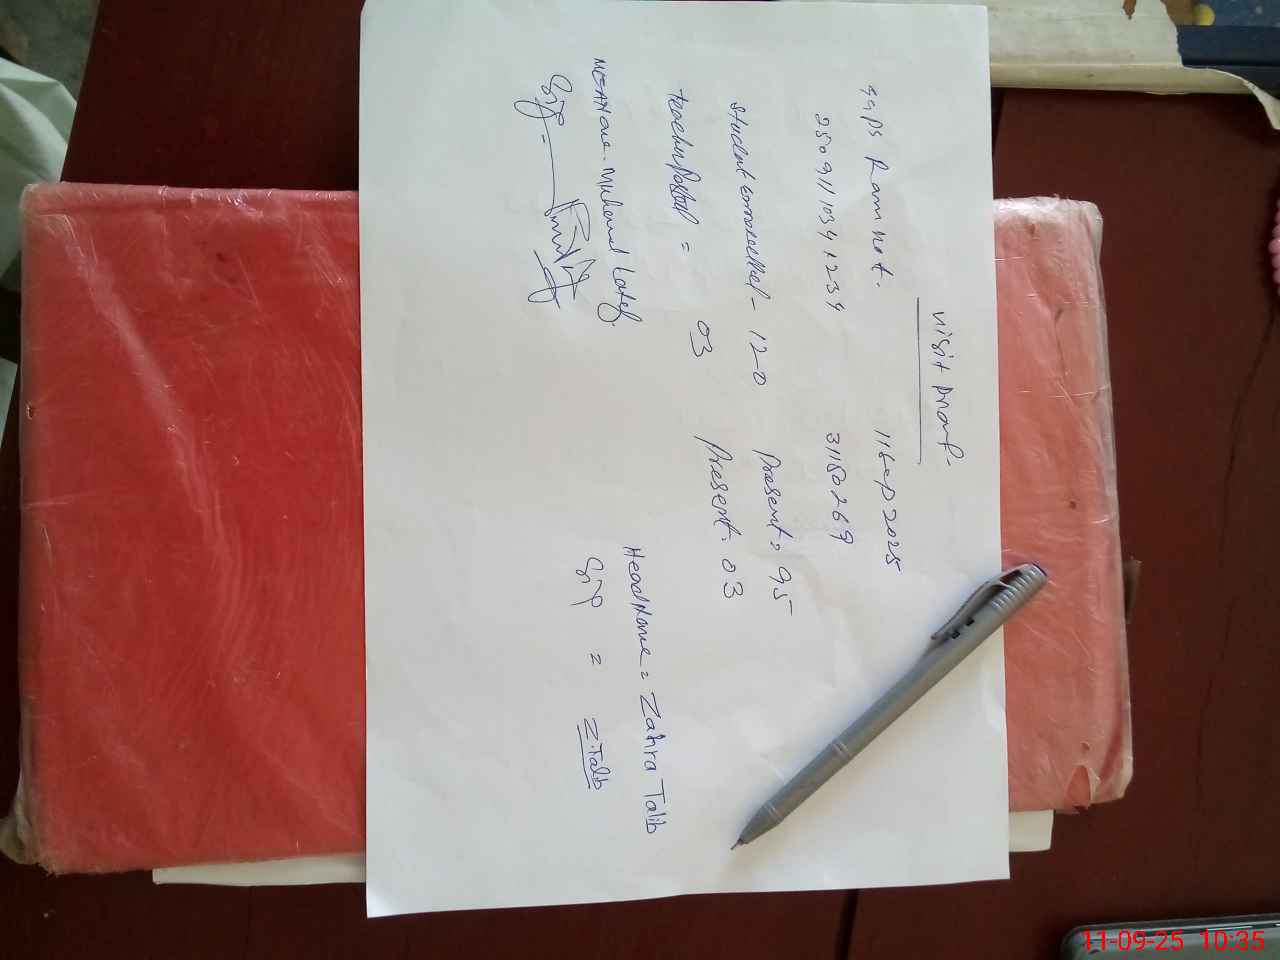 visit Proof.
GGPS Ramkot. 11 Sep 2025
2509111034 1234 31150269
Student Enrolled - 120 Present = 95
teacher Posted = 03 Present. 03
Name. Muhamad Latef. Head Name = Zahra Talib
Sig = Sig = Z.Talib
11-09-25 10:35